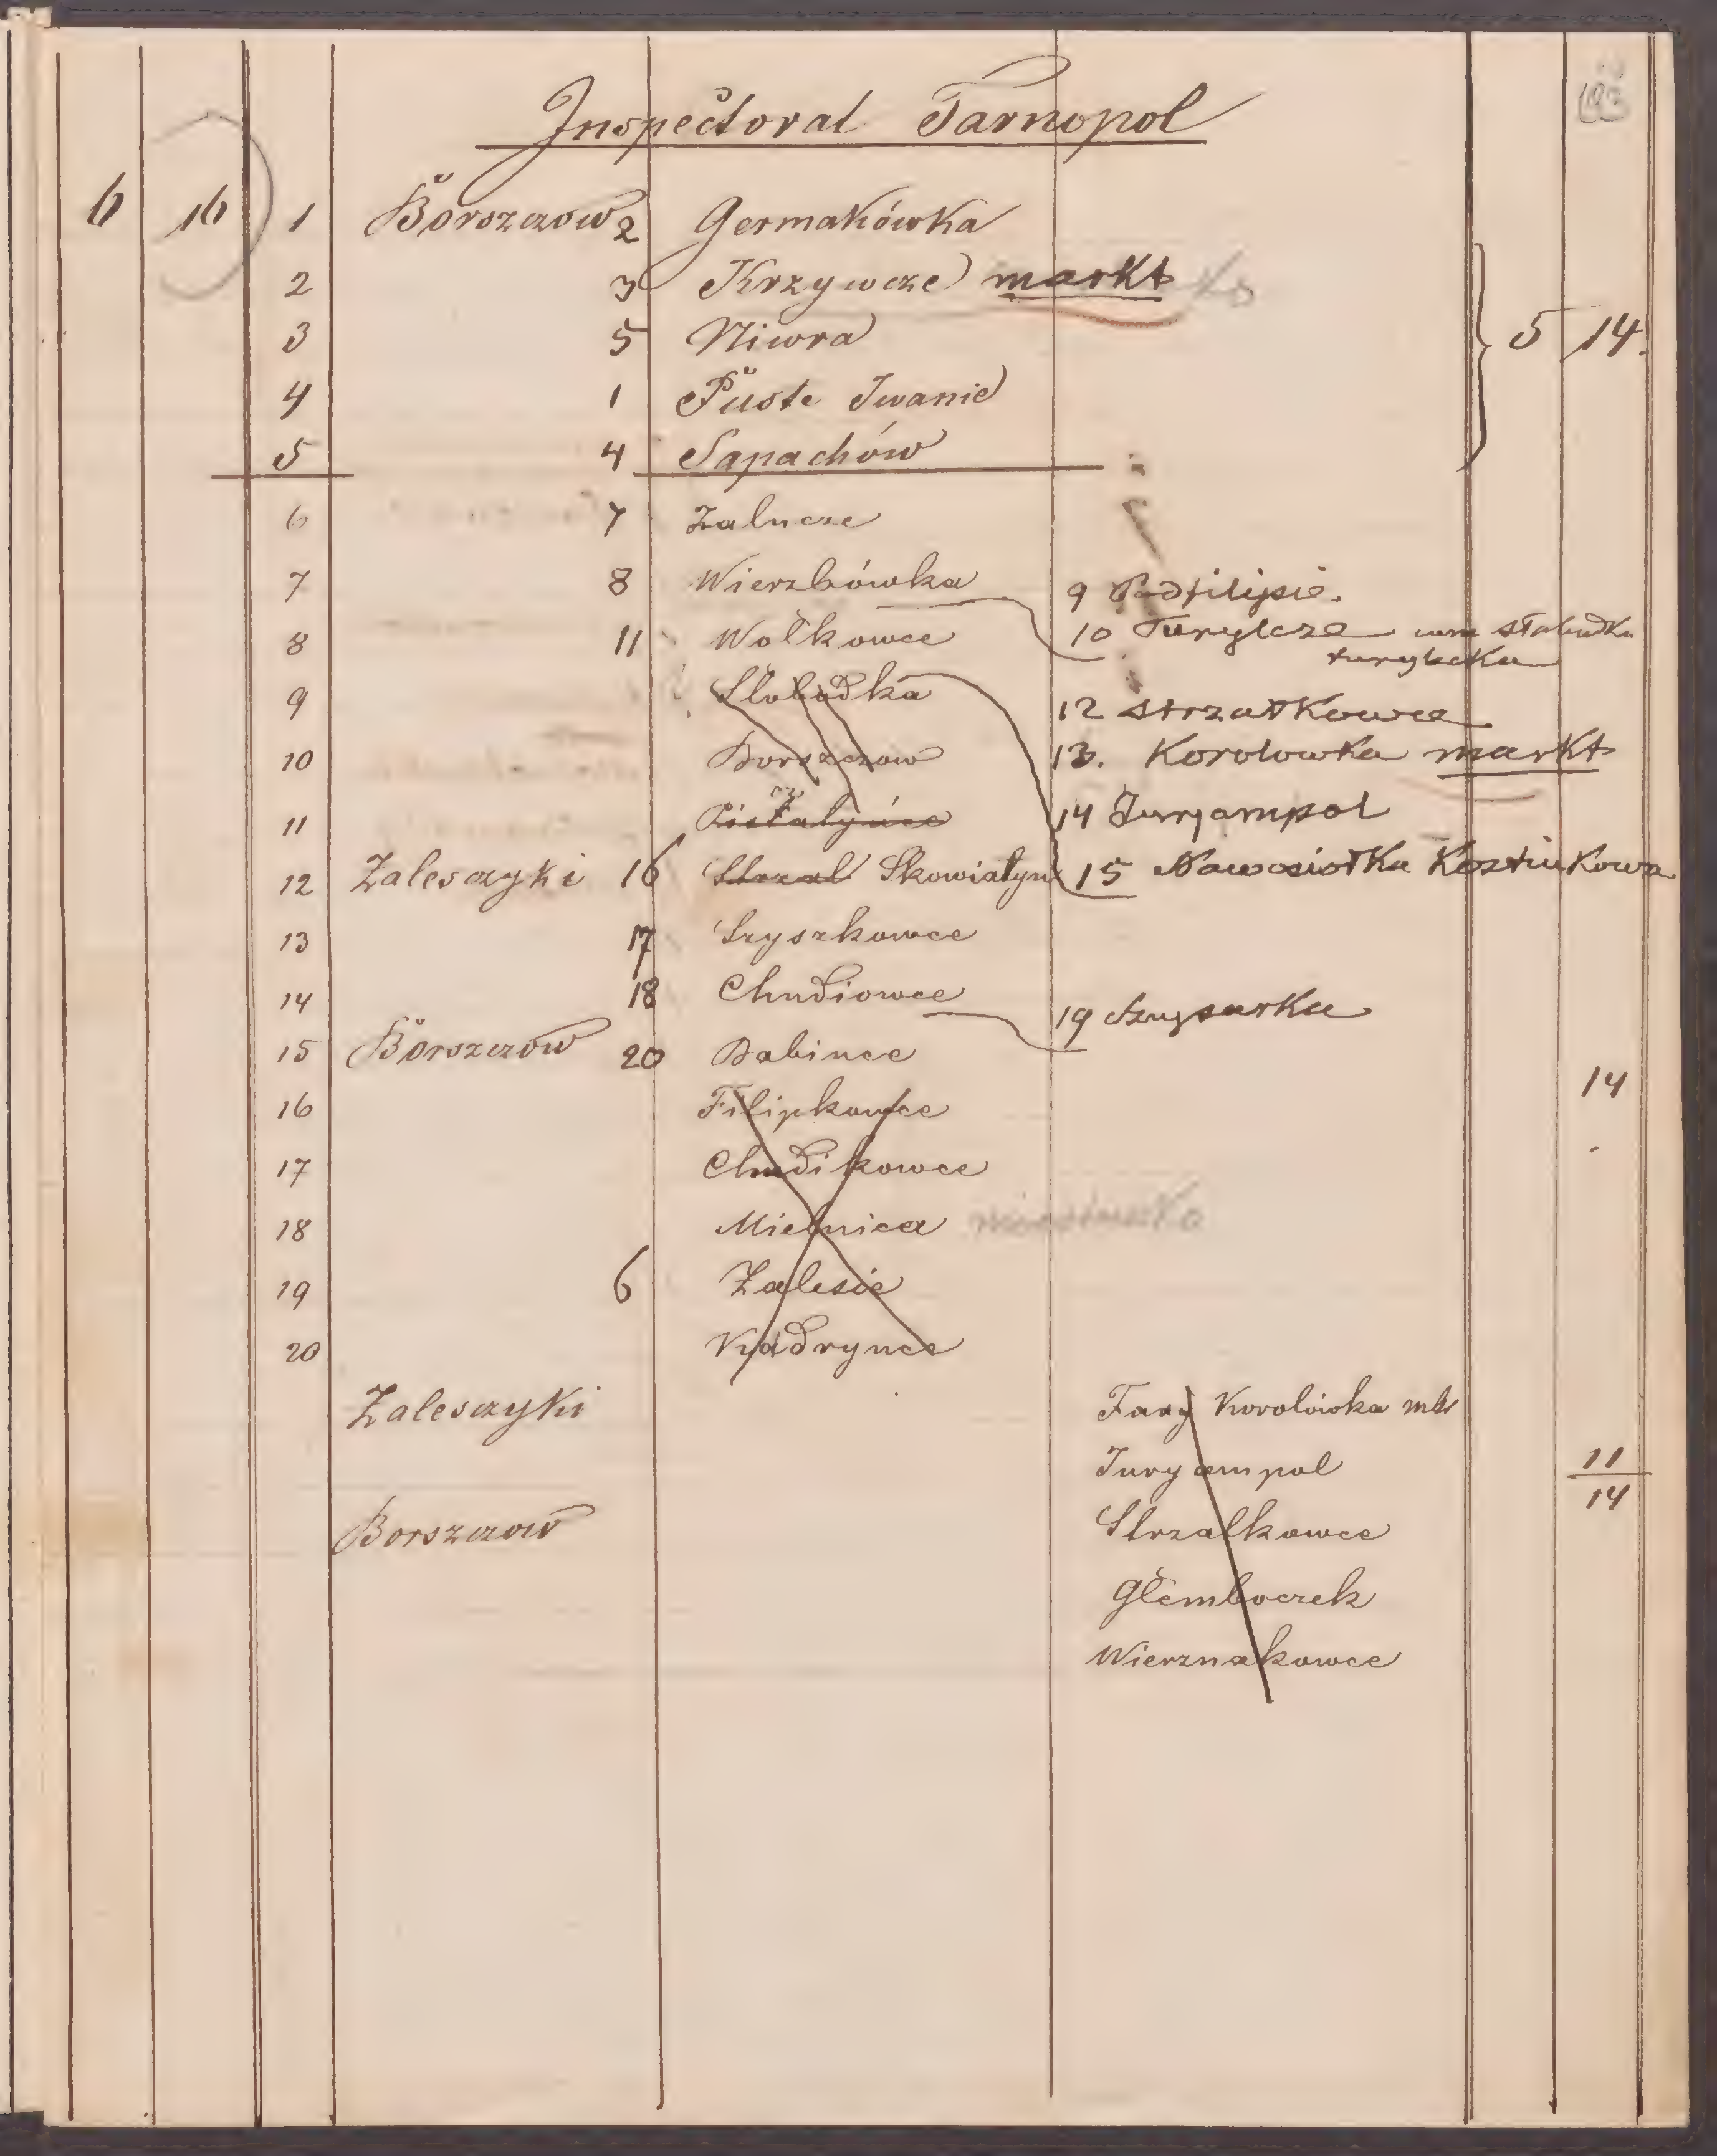 Inspectorat Tarnopol
6 16 1 Borszczow 2 Germakówka
2 3 Krzywcze markt
3 5 Niwra 5 14.
4 1 Puste Iwanie
5 4 Sapachów
6 7 Zalucze
7 8 Wierzbówka 9 Podfilipie.
8 11 Wołkowce 10 Turylcze
turylecka
9 Słobodka 12 Strzałkowce
10 Borszczow 13. Korolowka markt
11 14 Jurjampol
12 Zalesczyki 16 Strzal Skowiatyn 15 Nawosiołka Kostiukowa
13 17 Szyszkowce
14 18 Chudiowce 19
15 Borszczow 20 Babince
14
16 Filipkowce
17 Chudikowce
18 Mielnica
19 6 Zalesie
20 Kudrynce
Zalesczyki Korolówka
Juryampol 11
14
Borszczow Strzalkowce
Głemboczek
Wierznakowce